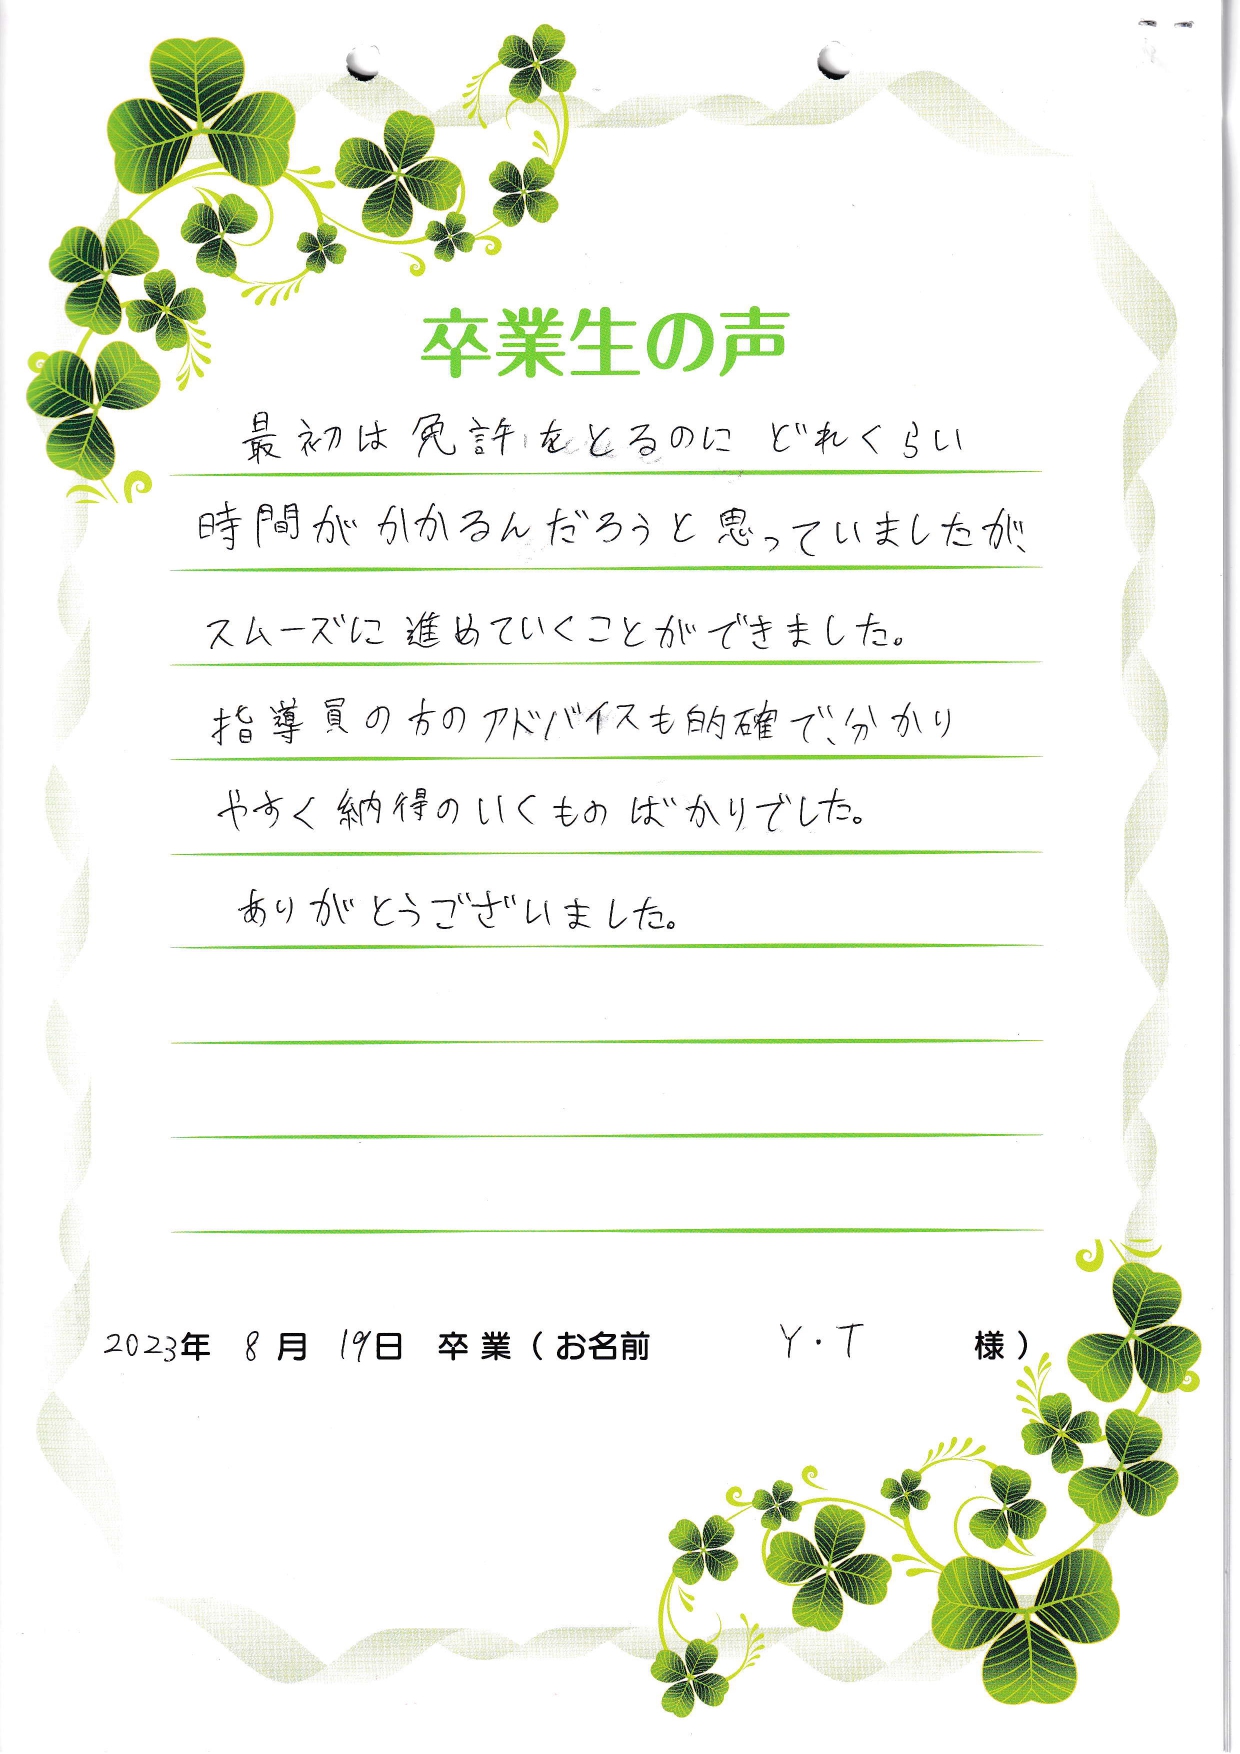 卒業生の声
最初は免許をとるのにどれくらい
時間がかかるんだろうと思っていましたが、
スムーズに進めていくことができました。
指導員の方のアドバイスも的確で、分かり
やすく納得のいくものばかりでした。
ありがとうございました。
2023年 8月 19日 卒業（お名前 Y・T 様）